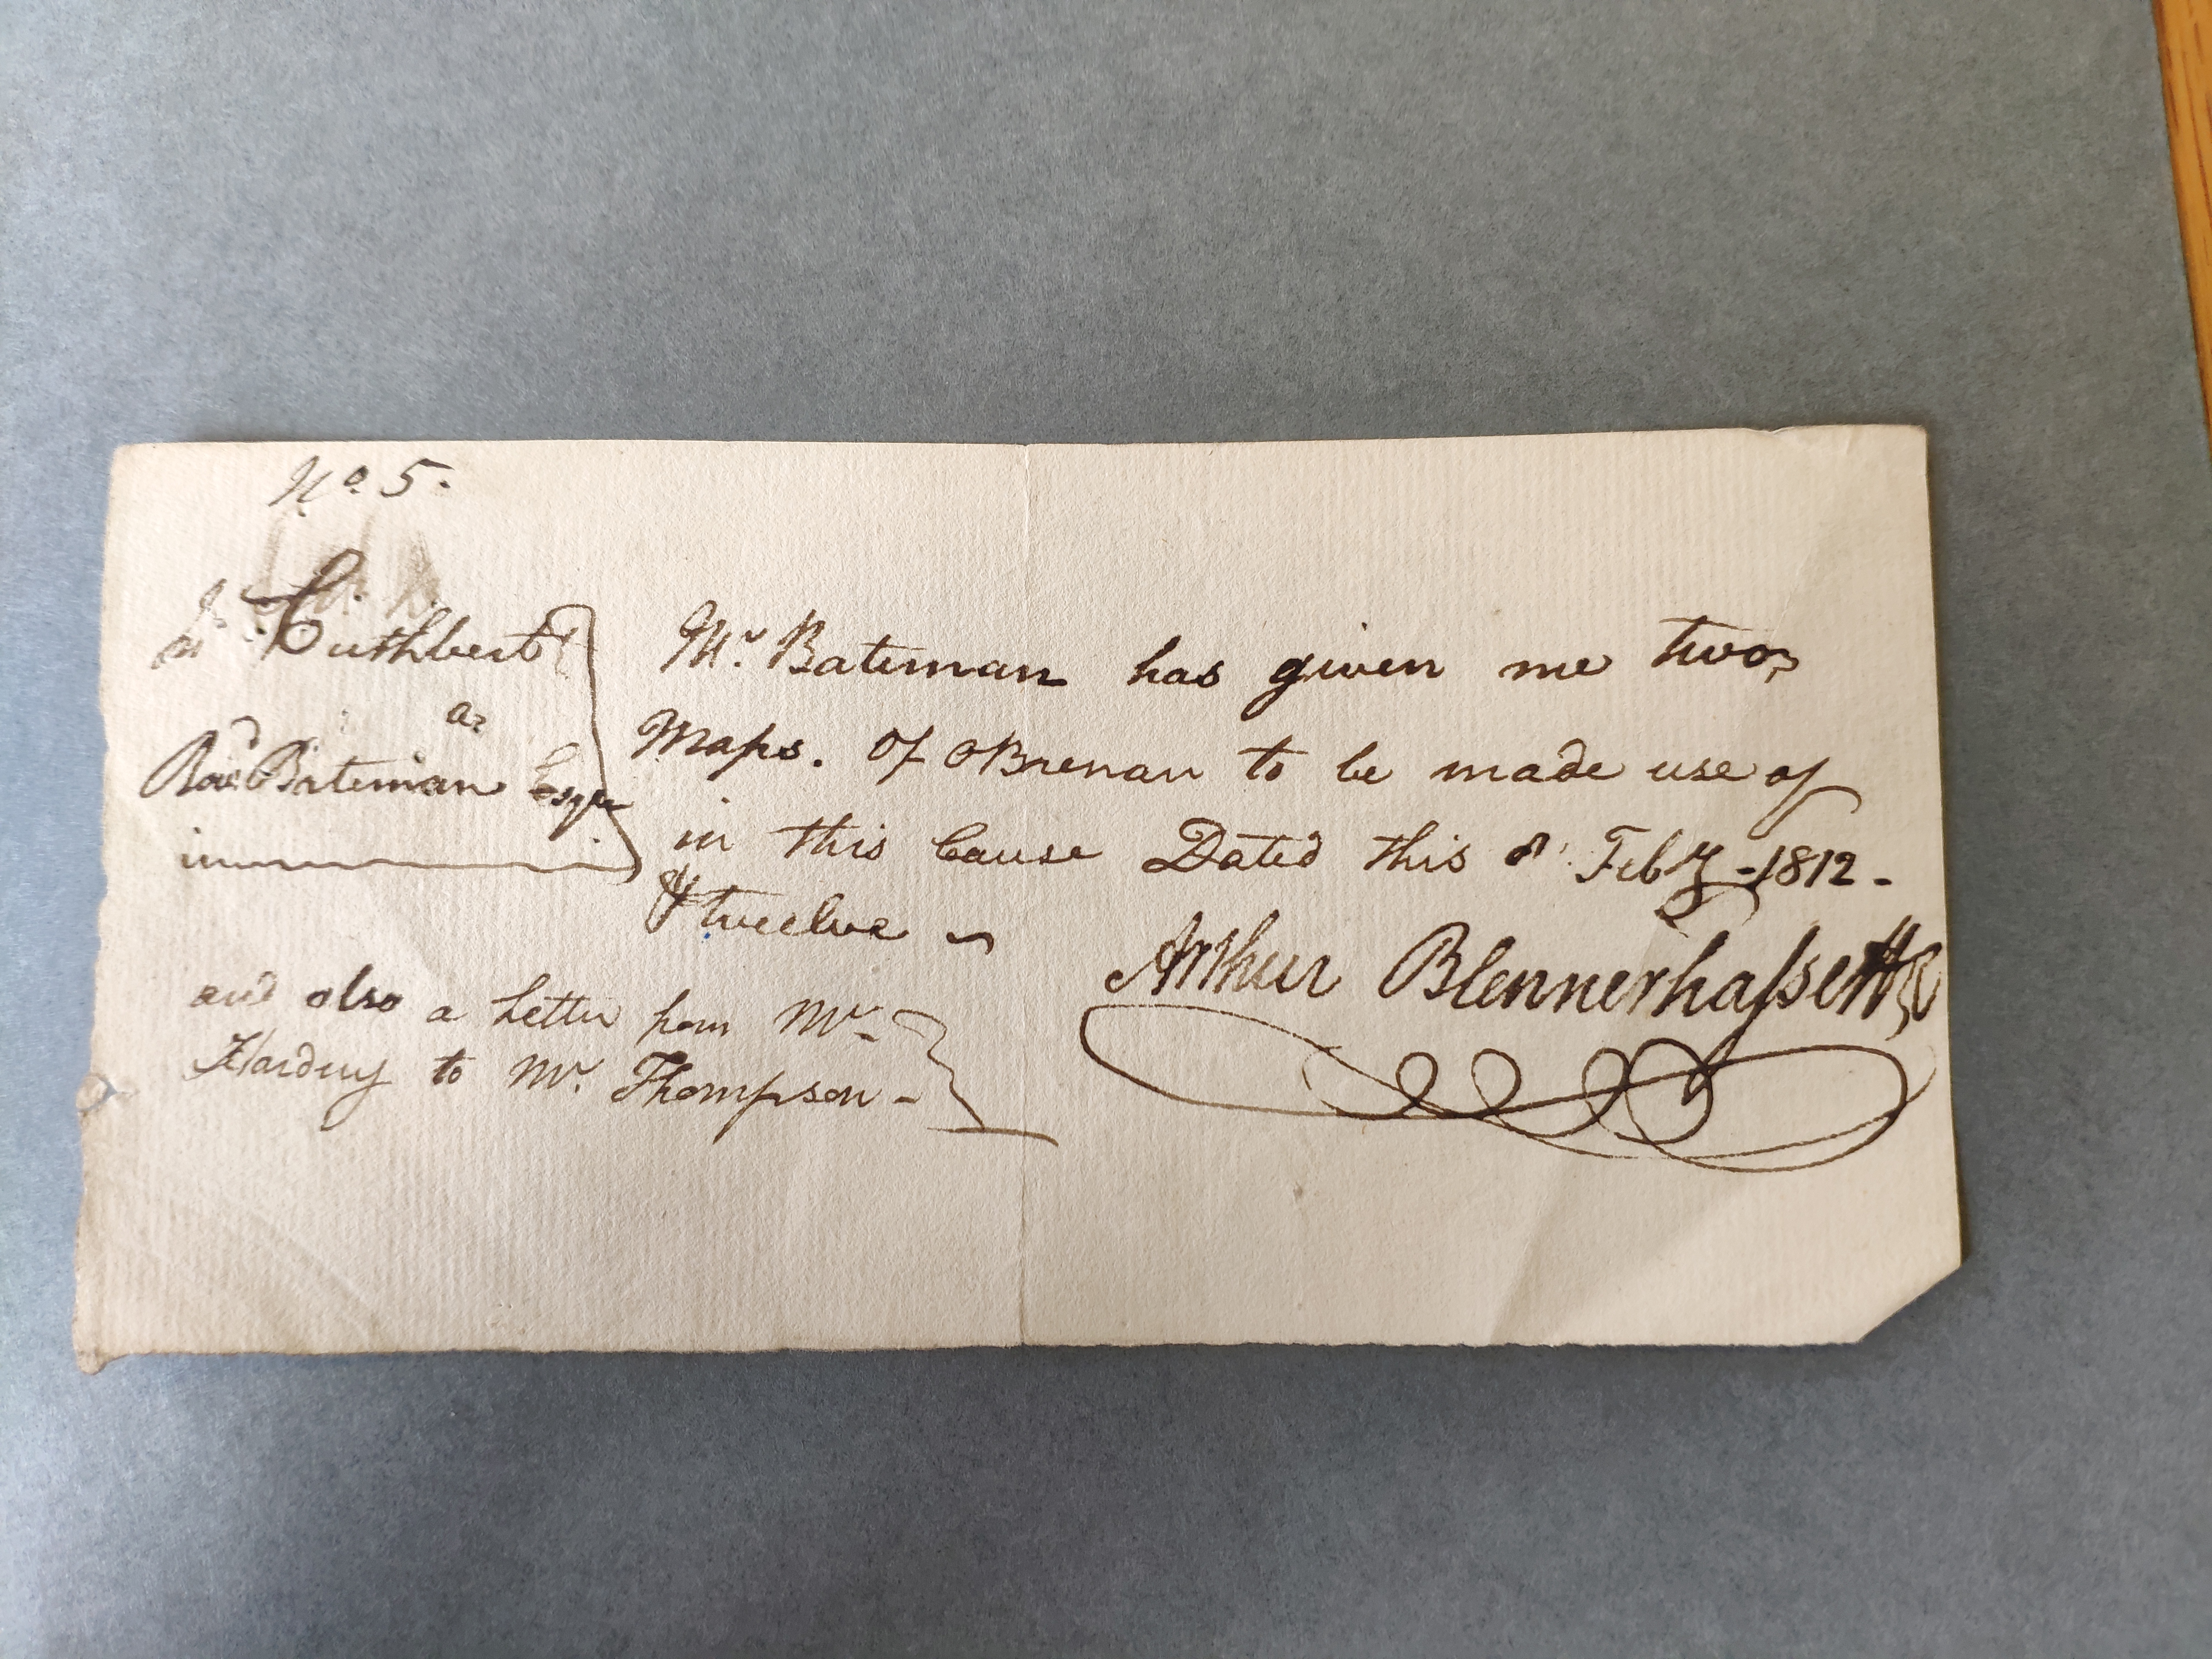 No 5.
Cuthbert
a
Row.d Bateman Esqr
Mr. Bateman has given me two
Maps. Of OBrenan to be made use of
in this Cause Dated this 8 Feby - 1812 -
& twelve
Arthur Blennerhassett
and also a Letter from Mr
Harding to Mr. Thompson -